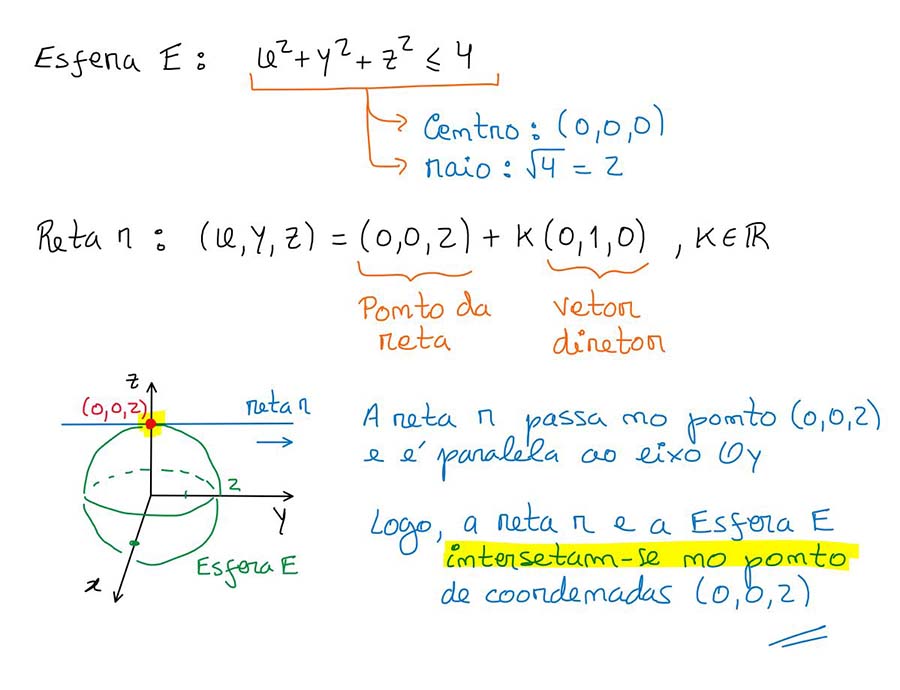 Esfera E: x²+y²+z² ≤ 4
Centro: (0,0,0)
raio: √4 = 2
Reta r: (x,y,z) = (0,0,2) + K(0,1,0), K∈ℝ
Ponto da
reta
vetor
diretor
z
(0,0,2)
reta r
2
y
x
Esfera E
A reta r passa no ponto (0,0,2)
e é paralela ao eixo Oy
Logo, a reta r e a Esfera E
intersetam-se no ponto
de coordenadas (0,0,2)